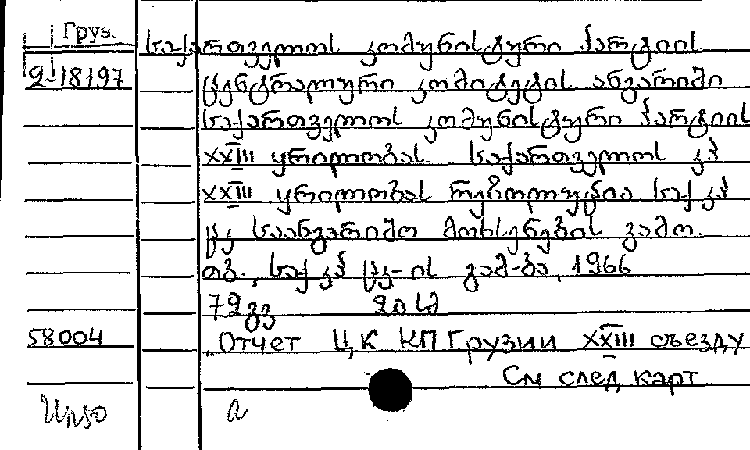 Груз.
2-18197
საქართველოს კომუნისტური პარტიის
ცენტრალური კომიტეტის ანგარიში
საქართველოს კომუნისტური პარტიის
XXIII ყრილობას. საქართველოს კპ
XXIII ყრილობის რეზოლუცია საქ. კპ
ცკ საანგარიშო მოხსენების გამო.
თბ., საქ კპ ცკ-ის გამ-ბა, 1966
72 გვ 20 სმ
58004
"Отчет ЦК КП Грузии XXIII съезду
См след карт
а